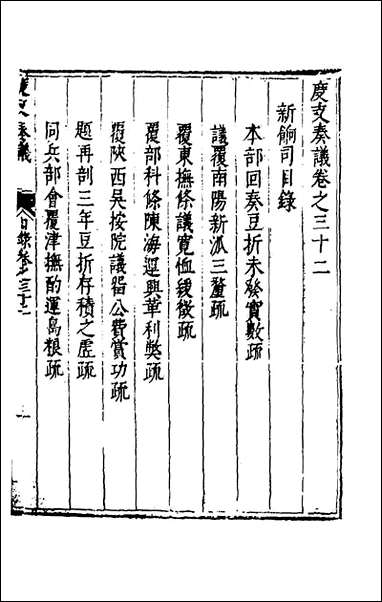 度支奏議卷之三十二
新餉司目錄
本部回奏豆折未發實數疏
議覆南陽新派三釐疏
覆東撫條議寬恤緩徵疏
覆部科條陳海運興革利獘疏
覆陝西吳按院議留公費賞功疏
題再剖三年豆折存積之虛疏
同兵部會覆津撫酌運島粮疏
度支奏議
目錄卷之三十二
一